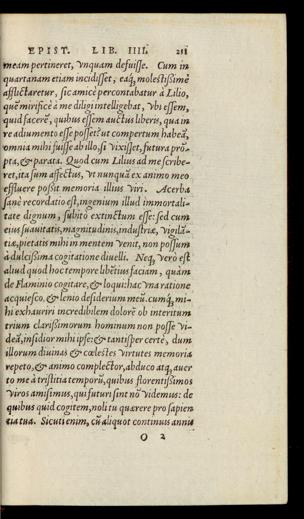 EPIST. LIB. IIII. 211
meam pertineret, vnquam defuisse. Cum in
quartanam etiam incidisset, eaq́; molestissimè
afflictaretur, sic amicè percontabatur à Lilio,
què mirificè à me diligi intelligebat, vbi essem,
quid facerē, quibus essem auctus liberis, qua in
re adiumento esse possēt: vt compertum habeā,
omnia mihi fuisse ab illo, si vixisset, futura prō-
pta, & parata. Quod cum Lilius ad me scribe-
ret, ita sum affectus, vt nunquā ex animo meo
effluere possit memoria illius viri. Acerba
sanè recordatio est, ingenium illud immortali-
tate dignum, subitò extinctum esse: sed cum
eius suauitatis, magnitudinis, industriæ, vigilā-
tiæ, pietatis mihi in mentem venit, non possum
à dulcissima cogitatione diuelli. Neq́; verò est
aliud quod hoc tempore libētius faciam, quàm
de Flaminio cogitare, & loqui: hac vna ratione
acquiesco, & lenio desiderium meū. cumq́; mi-
hi exhauriri incredibilem dolorē ob interitum
trium clarissimorum hominum non posse vi-
deā, insidior mihi ipse: & tantisper certè, dum
illorum diuinas & cœlestes virtutes memoria
repeto, & animo complector, abduco atq́; auer
to me à tristitia temporū, quibus florentissimos
viros amisimus, qui futuri sint nō videmus: de
quibus quid cogitem, noli tu quærere pro sapien
tia tua. Sicuti enim, cū aliquot continuis annis
O 2